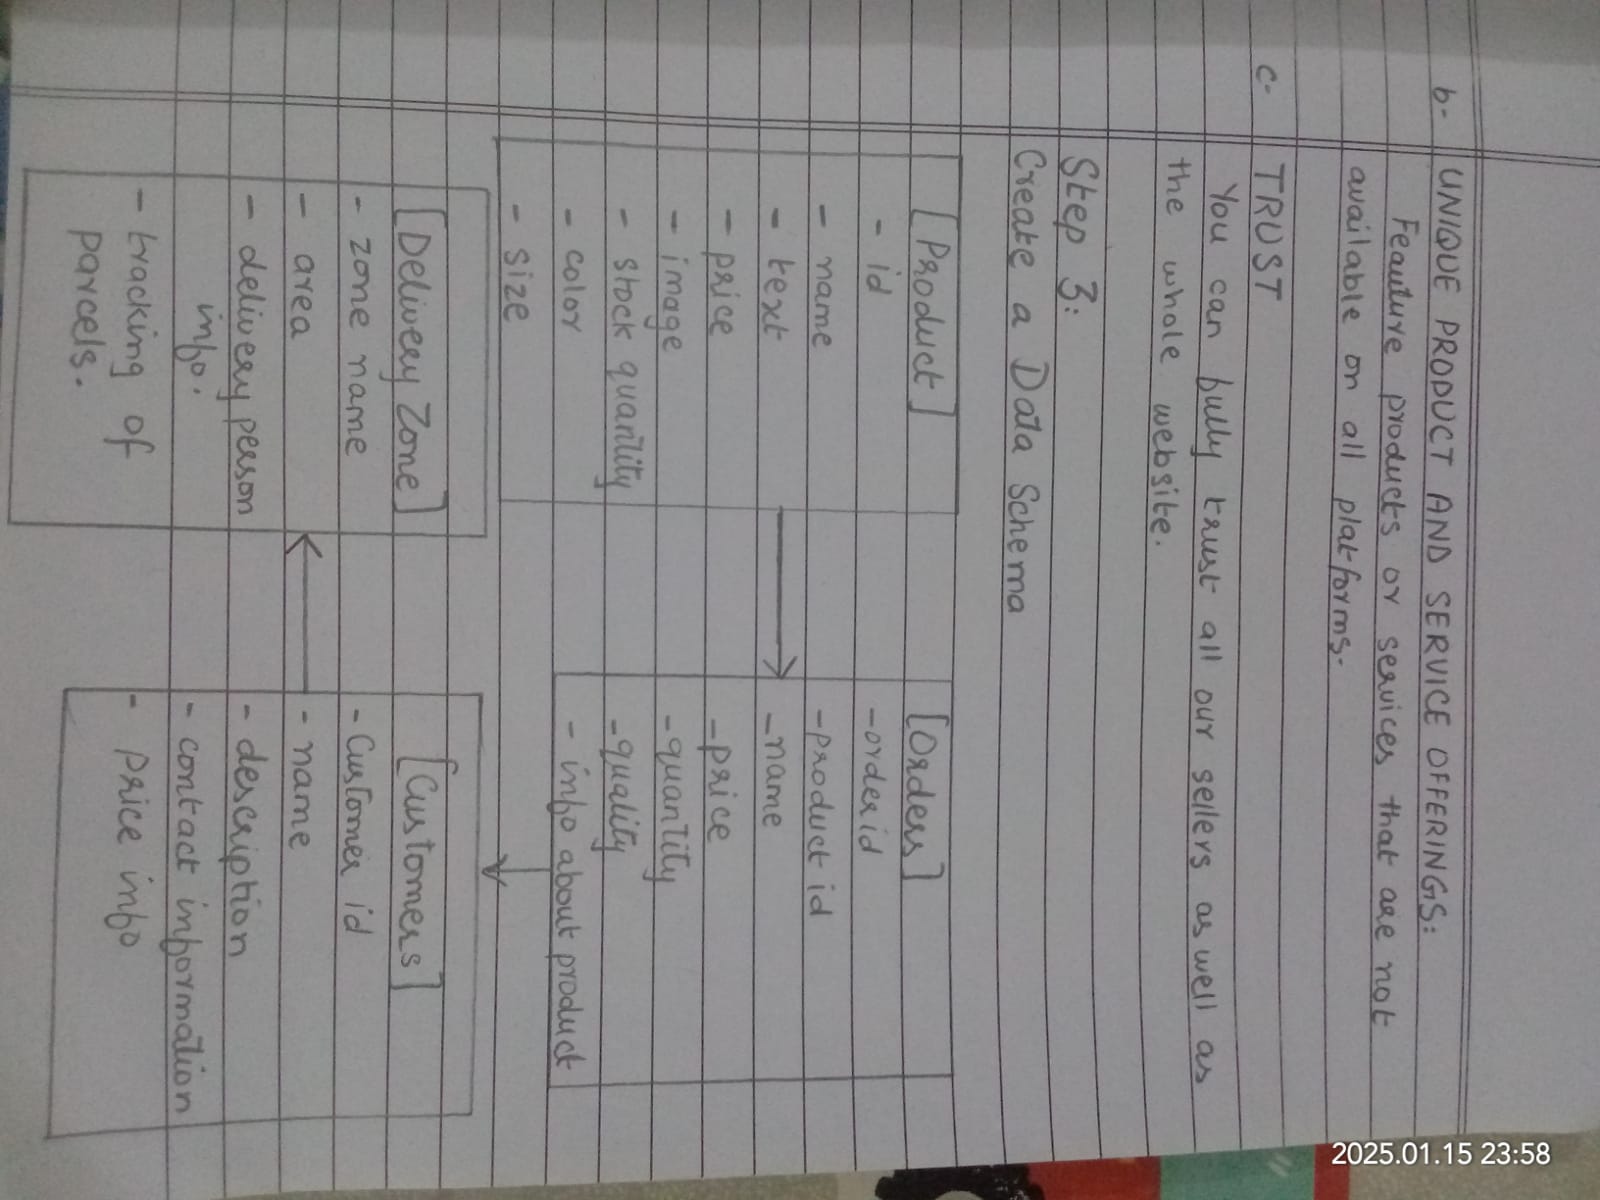 b- UNIQUE PRODUCT AND SERVICE OFFERINGS:
Feauture products or services that are not
available on all platforms.
c- TRUST
You can fully trust all our sellers as well as
the whole website.
Step 3:
Create a Data Schema
[Product]
- id
- name
- text
- price
- image
- stock quantity
- color
- size
[Orders]
- order id
- product id
- name
- price
- quantity
- quality
- info about product
[Delivery Zone]
- zone name
- area
- delivery person
info.
- tracking of
parcels.
[Customers]
- Customer id
- name
- description
- contact information
- price info
2025.01.15 23:58